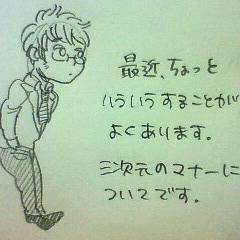 最近、ちょっと
いういうすることが
よくあります。
三次元のマナーに
ついてです。